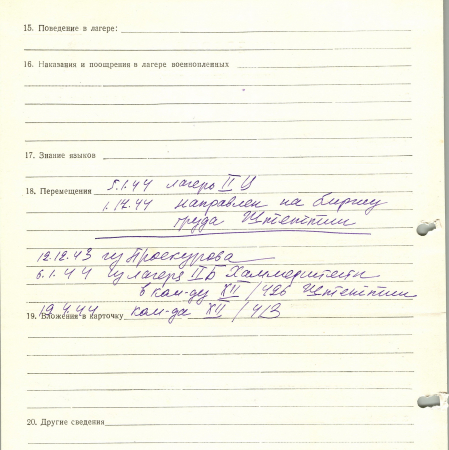 15. Поведение в лагере:
16. Наказания и поощрения в лагере военнопленных
17. Знание языков
18. Перемещения 5.1.44 лагерь II Ц
1.12.44 направлен на биржу
труда Цтентпин
12.12.43 из Проскурова
6.1.44 из лагеря II Б Хаммерштейн
в ком-ду XII/426 Цтентпин
19.4.44 ком-да XII/413
19. Вложения в карточку
20. Другие сведения